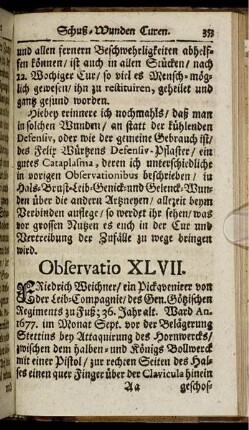 Schuß-Wunden Curen. 353
und allen fernern Beschwehrligkeiten abhelf-
fen können / ist auch in allen Stücken / nach
22. Wochiger Cur / so viel es Mensch-mög-
lich gewesen / ihn zu restituiren, geheilet und
gantz gesund worden.
Hiebey erinnere ich nochmahls / daß man
in solchen Wunden / an statt der kühlenden
Defensiv, oder wie der gemeine Gebrauch ist /
des Felix Würtzens Defensiv-Pflaster / ein
gutes Cataplasma, deren ich unterschiedliche
in vorigen Observationibus beschrieben / in
Hals-Brust-Leib-Genick-und Gelenck-Wun-
den über die andern Artzneyen / allezeit beym
Verbinden auflege / so werdet ihr sehen / was
vor grossen Nutzen es euch in der Cur und
Vertreibung der Zufälle zu wege bringen
wird.
Observatio XLVII.
FRiedrich Weichner / ein Piquenierer von
der Leib-Compagnie / des Gen. Götzischen
Regiments zu Fuß; 36. Jahr alt. Ward An.
1677. im Monat Sept. vor der Belägerung
Stettins bey Attaquirung des Hornwercks /
zwischen dem halben- und Königs Bollwerck
mit einer Pistol / zur rechten Seiten des Hal-
ses einen quer Finger über der Clavicula hinein
Aa geschos-